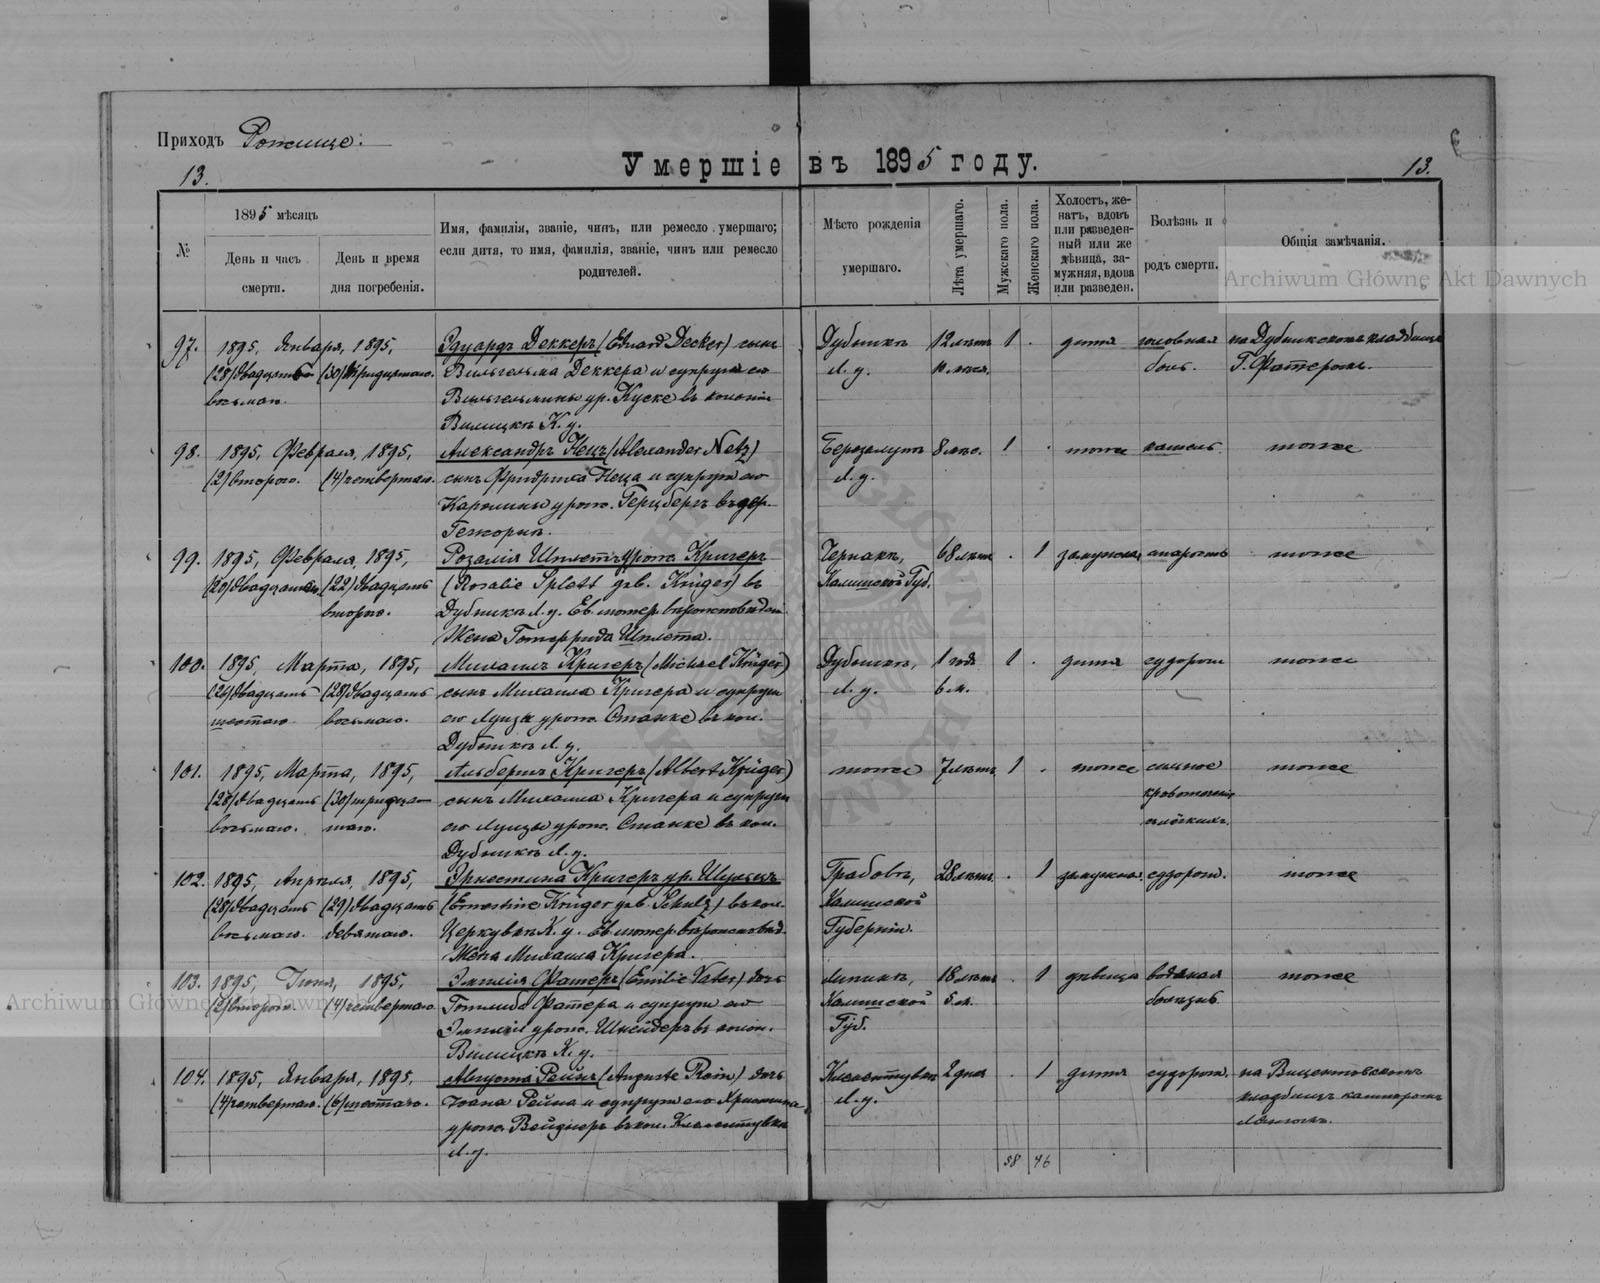 Приходъ Рожище.
Умершіе въ 1895 году.
13.
13.
№
1895 мѣсяцъ
День и часъ смерти.
День и время дня погребенія.
Имя, фамилія, званіе, чинъ, или ремесло умершаго;
если дитя, то имя, фамилія, званіе, чинъ или ремесло
родителей.
Мѣсто рожденія
умершаго.
Лѣта умершаго.
Мужскаго пола.
Женскаго пола.
Холостъ, же-
натъ, вдовъ
или разведен-
ный или же
дѣвица, за-
мужняя, вдова
или разведен.
Болѣзнь и
родъ смерти.
Общія замѣчанія.
Archiwum Główne Akt Dawnych
97. 1895, Января, 1895, Эдуардъ Деккеръ (Eduard Decker) сынъ Дубникъ 12 лѣтъ 1 . дитя головная на Дубникскомъ кладбищѣ
(28) двадцать (30) тридцатаго. Вильгельма Деккера и супруги его Л. у. боль. Г. Фатеромъ.
восьмаго. Вильгельмины ур. Куске въ колоніи
К. у.
98. 1895, Февраля, 1895, Александръ Нецъ (Alexander Netz) 1 . тоже кашель тоже
(2) второго. (4) четвертаго. сынъ Фридриха Неца и супруги его Л. у.
Каролины урож. Герцбергъ въ дер.
99. 1895, Февраля, 1895, Розалія Шплетъ урож. Кригеръ 68 лѣтъ . 1 замужняя старость тоже
(20) двадцатаго. (22) двадцать (Rosalie Splett geb. Krüger) въ Калишской Губ.
второго. Дубникъ Л. у. Ев. лютер. вѣроисповѣд.
Жена Готфрида Шплета.
100. 1895, Марта, 1895, Михаилъ Кригеръ (Michael Krüger) Дубникъ, 1 годъ 1 . дитя судорог. тоже
(26) двадцать (28) двадцать сынъ Михаила Кригера и супруги Л. у. 6 м.
шестаго восьмаго. его Луизы урож. Станке въ кол.
Дубникъ Л. у.
101. 1895, Марта, 1895, Альбертъ Кригеръ (Albert Krüger) тоже 7 лѣтъ 1 . тоже сильное тоже
(28) двадцать (30) тридца- сынъ Михаила Кригера и супруги кровотеченіе
восьмаго. таго. его Луизы урож. Станке въ кол.
Дубникъ Л. у.
102. 1895, Апрѣля, 1895, Эрнестина Кригеръ ур. Шульцъ Грабовъ, 28 лѣтъ . 1 замужняя судорог. тоже
(28) двадцать (29) двадцать (Ernestine Krüger geb. Schulz) въ кол. Калишской
восьмаго. девятаго. К. у. Ев. лютер. вѣроисповѣд. Губерніи.
Жена Михаила Кригера.
103. 1895, Іюня, 1895, Эмилія Фатеръ (Emilie Vater) дочь 18 лѣтъ . 1 дѣвица водяная тоже
(2) второго. (4) четвертаго. Готлиба Фатера и супруги его Калишской 5 м. болѣзнь
Эмиліи урож. Шнейдеръ въ колон. Губ.
К. у.
Archiwum Główne Akt Dawnych
104. 1895, Января, 1895, Августа Рейнъ (Auguste Rein) дочь 2 дня . 1 дитя судорог. на Вицентовскомъ
(4) четвертаго. (6) шестаго. Іоана Рейна и супруги его Христины Л. у. кладбищѣ канторомъ
урож. Вейднеръ въ кол.
Л. у.
58 46